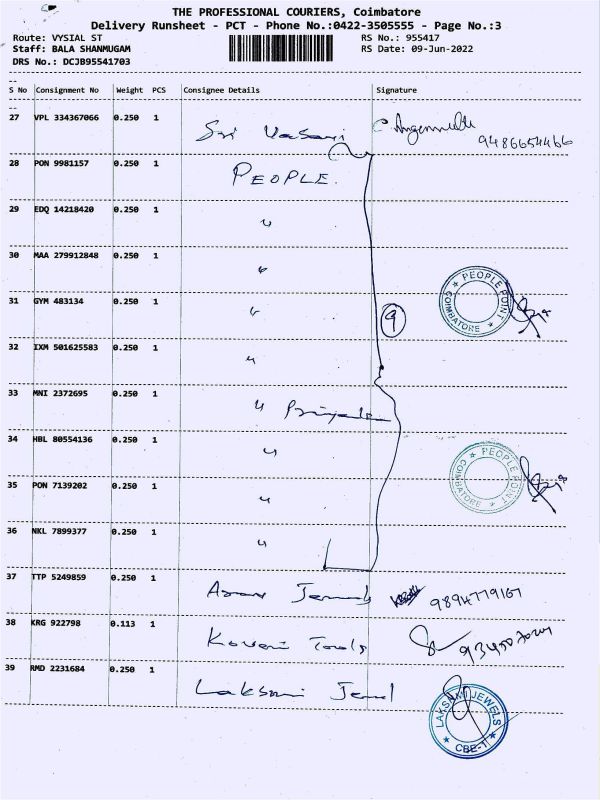 THE PROFESSIONAL COURIERS, Coimbatore
Delivery Runsheet - PCT - Phone No.:0422-3505555 - Page No.:3
Route: VYSIAL ST RS No.: 955417
Staff: BALA SHANMUGAM RS Date: 09-Jun-2022
DRS No.: DCJB95541703
S No Consignment No Weight PCS Consignee Details Signature
27 VPL 334367066 0.250 1 Sri Vasavi
9486654466
28 PON 9981157 0.250 1 PEOPLE.
29 EDQ 14218420 0.250 1 "
30 MAA 279912848 0.250 1 "
31 GYM 483134 0.250 1 " 9
PEOPLE POINT COIMBATORE
32 IXM 501625583 0.250 1 "
33 MNI 2372695 0.250 1 "
34 HBL 80554136 0.250 1 "
35 PON 7139202 0.250 1 "
PEOPLE POINT COIMBATORE
36 NKL 7899377 0.250 1 "
37 TTP 5249859 0.250 1 9894779167
38 KRG 922798 0.113 1 Kovai Tools
39 RMD 2231684 0.250 1 Laksmi Jewel
LAKSHMI JEWELS CBE-1